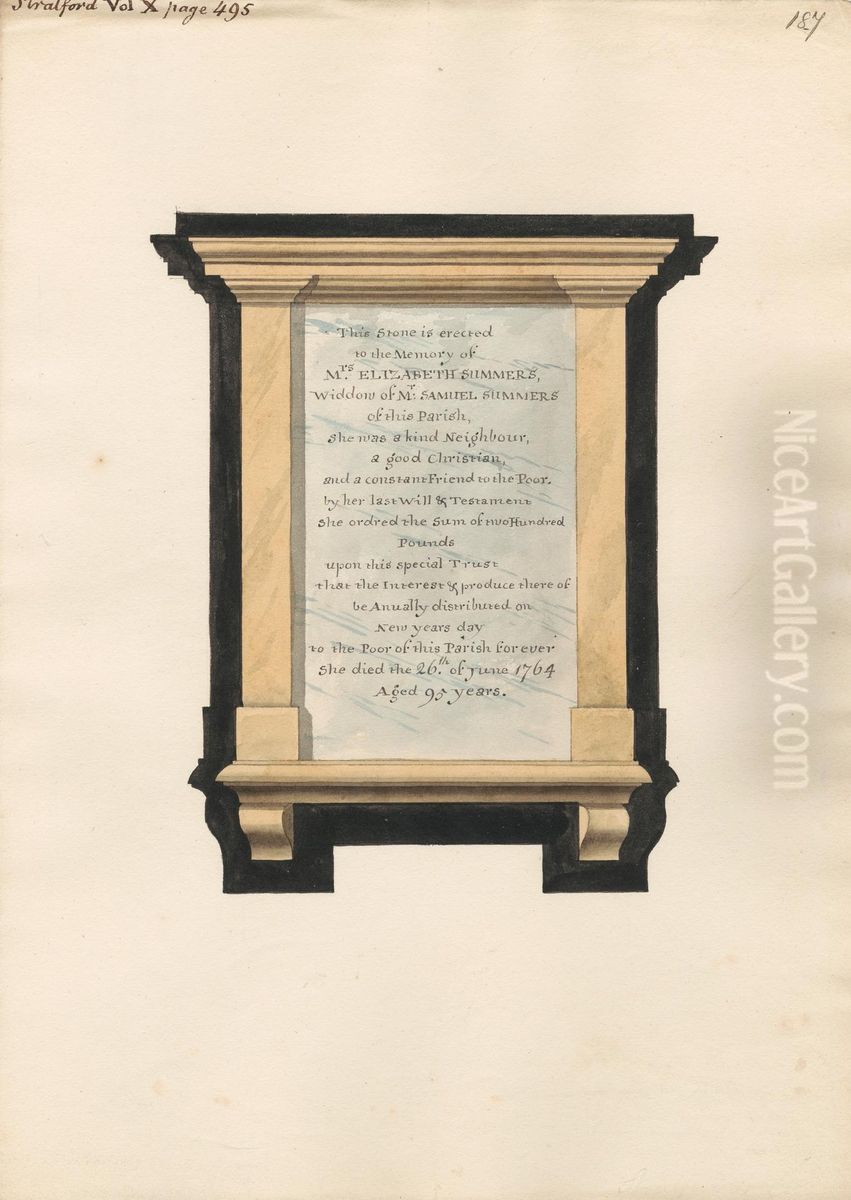 Stratford Vol X page 495
187
This Stone is erected
to the Memory of
Mrs. ELIZABETH SUMMERS,
Widdow of Mr. SAMUEL SUMMERS
of this Parish,
She was a kind Neighbour,
a good Christian,
and a constant Friend to the Poor.
by her last Will & Testament
She ordred the Sum of two Hundred
Pounds
upon this special Trust
that the Interest & produce there of
be Anually distributed on
New years day
to the Poor of this Parish for ever
She died the 26th. of June 1764
Aged 95 years.
NiceArtGallery.com